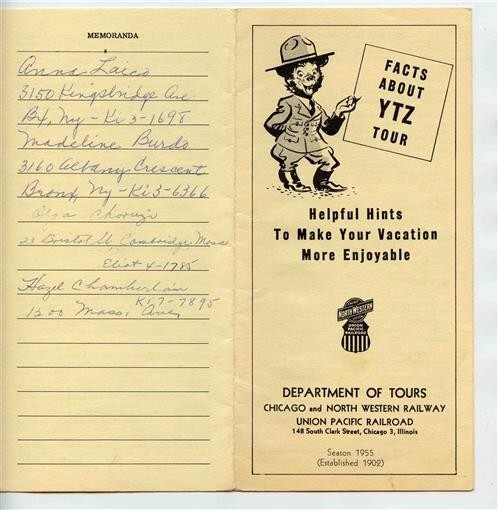 MEMORANDA
Anna Laico
3150 Kingsbridge Ave
Bx, Ny - Ki 3-1698
Madeline Burdo
3160 Albany Crescent
Bronx, Ny - Ki 3-6366
Olga
23 Bristol St, Cambridge, Mass
Eliot 4-1785
Hazel Chamberlain
Ki 7-7895
1200 Mass. Ave,
FACTS
ABOUT
YTZ
TOUR
Helpful Hints
To Make Your Vacation
More Enjoyable
CHICAGO
NORTH WESTERN
UNION
PACIFIC
RAILROAD
DEPARTMENT OF TOURS
CHICAGO and NORTH WESTERN RAILWAY
UNION PACIFIC RAILROAD
148 South Clark Street, Chicago 3, Illinois
Season 1955
(Established 1902)